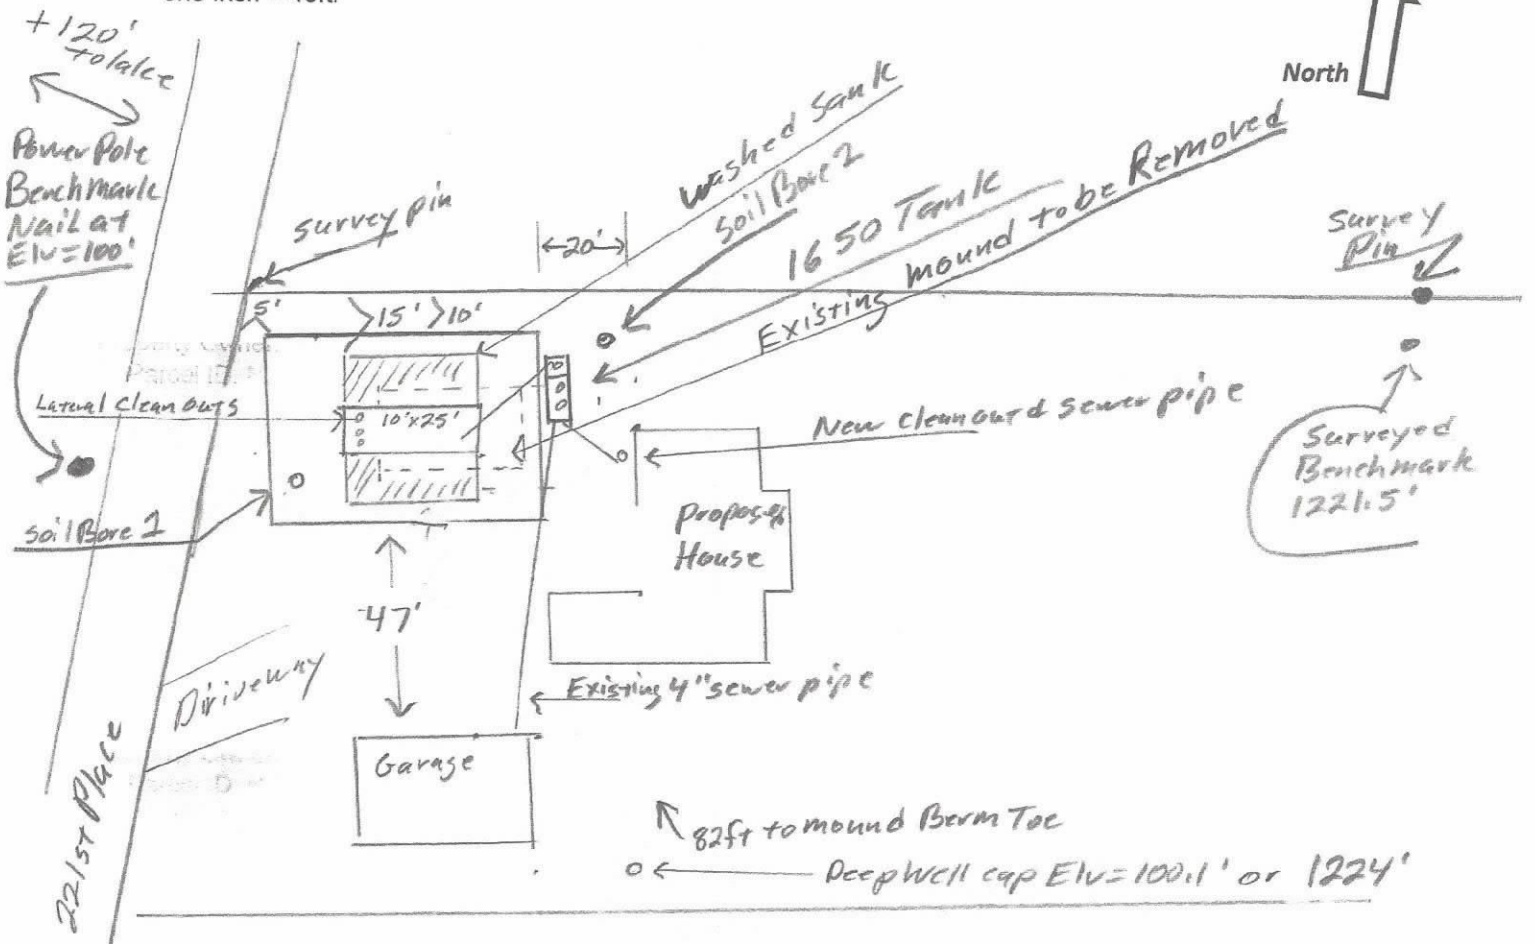 +120'
to lake
North
Power Pole
Benchmark
Nail at
Elv=100'
Survey pin
Washed Sank
Soil Bore 2
1650 Tank
Existing mound to be Removed
Survey
Pin
20'
5'
15' 10'
Parcel ID
Lateral Clean outs
10'x25'
New Cleanout & sewer pipe
Surveyed
Benchmark
1221.5'
Soil Bore 1
Proposed
House
47'
Driveway
Existing 4" sewer pipe
221st Place
Garage
82ft to mound Berm Toe
Deep Well cap Elv=100.1' or 1224'